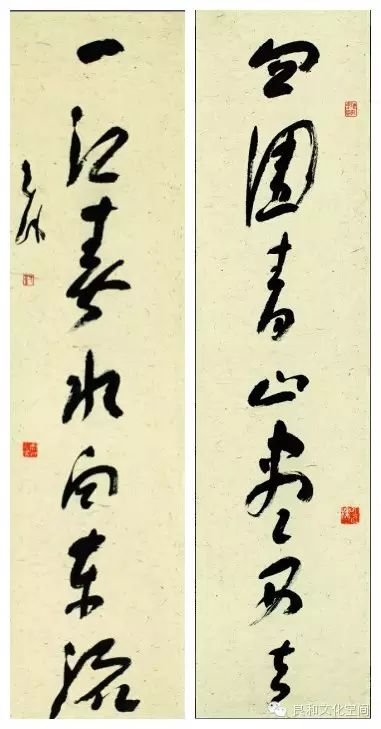 四圍青山盡去
一江春水向東流
良和文化空间